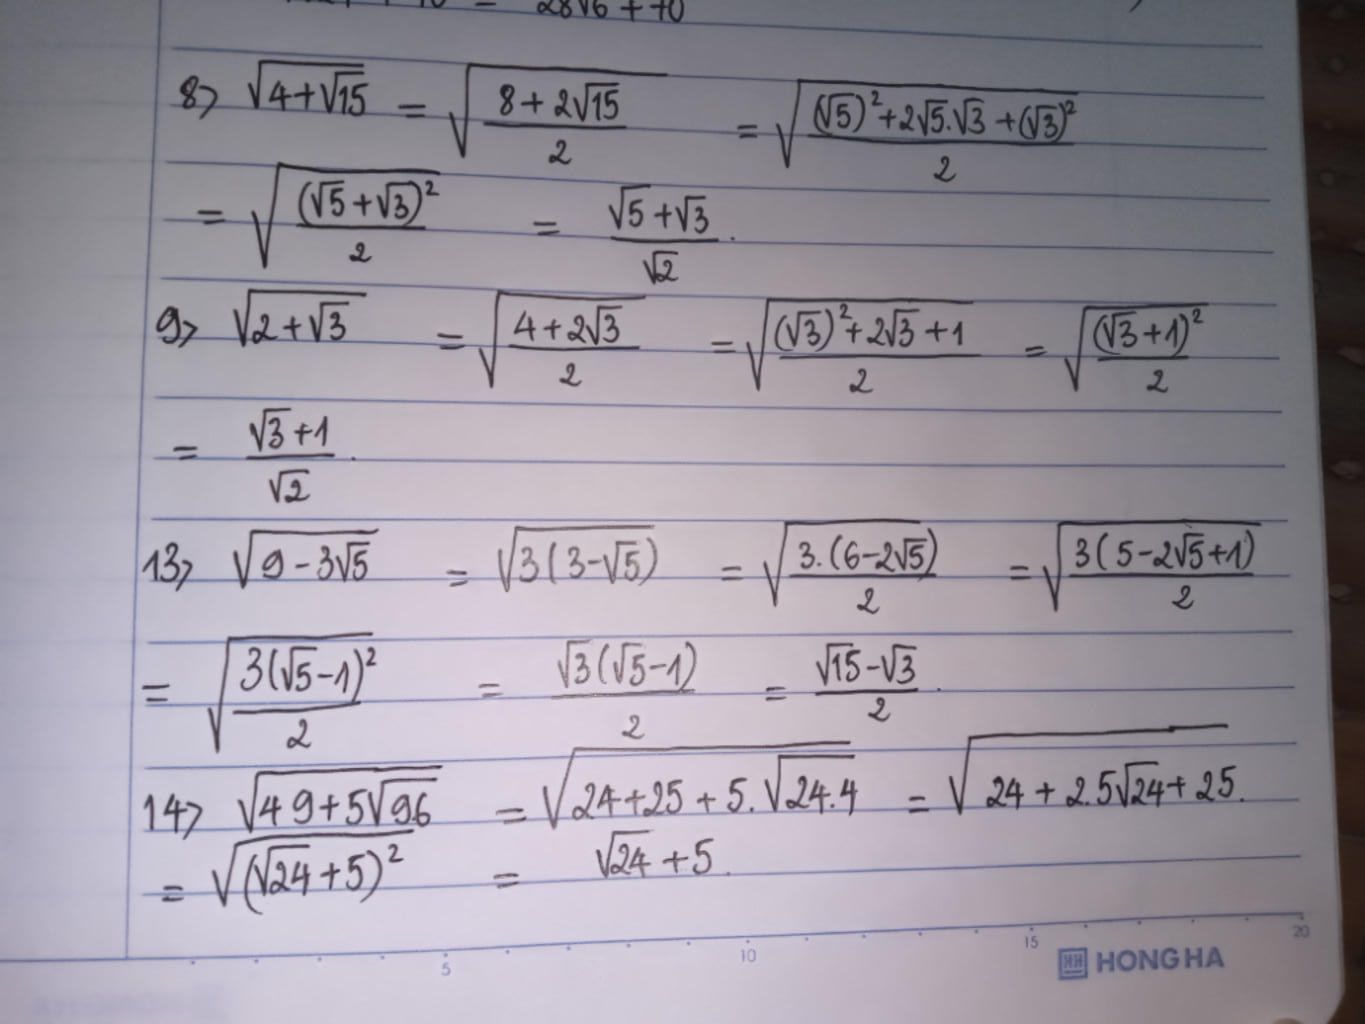 = 28√6 + 70
8> √(4+√15) = √((8+2√15)/2) = √(((√5)²+2√5.√3+(√3)²)/2)
= √((√5+√3)²/2) = (√5+√3)/√2.
9> √(2+√3) = √((4+2√3)/2) = √(((√3)²+2√3+1)/2) = √((√3+1)²/2)
= (√3+1)/√2.
13> √(9-3√5) = √(3(3-√5)) = √(3.(6-2√5)/2) = √(3(5-2√5+1)/2)
= √(3(√5-1)²/2) = √3(√5-1)/2 = (√15-√3)/2.
14> √(49+5√96) = √(24+25+5.√(24.4)) = √(24+2.5√24+25).
= √((√24+5)²) = √24+5.
5 10 15 20
HH HONG HA